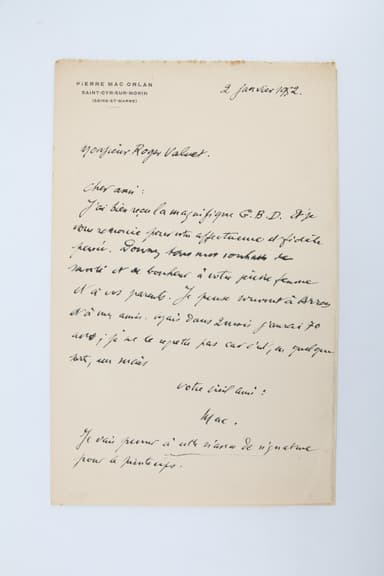 PIERRE MAC ORLAN
SAINT-CYR-SUR-MORIN
(SEINE-ET-MARNE)
2 janvier 1952.
Monsieur Roger Valuet.
Cher ami :
J'ai bien reçu la magnifique G.B.D. Et je
vous remercie pour votre affectueuse et fidèle
pensée. Donnez tous mes souhaits de
santé et de bonheur à votre femme
et à vos parents. Je pense souvent à
et à mes amis. Mais dans 2 mois j'aurai 70
ans ; je ne le regrette pas car c'est, en quelque
sorte, un
votre vieil ami :
Mac.
Je vais penser à cette de signature
pour le printemps.